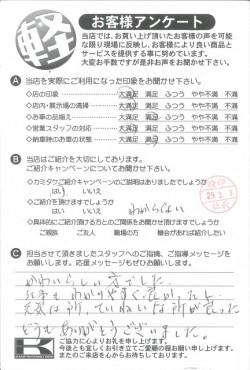 軽
お客様アンケート
当店では、お買い上げ頂いたお客様の声を可能
な限り現場に反映し、お客様により良い商品と
サービスを提供する事に努めています。
大変お手数ですが是非お声をお聞かせ下さい。
A 当店を実際にご利用になった印象をお聞かせ下さい。
◇店の印象 大満足 満足 ふつう やや不満 不満
◇店内・展示場の清掃 大満足 満足 ふつう やや不満 不満
◇お車の品揃え 大満足 満足 ふつう やや不満 不満
◇営業スタッフの対応 大満足 満足 ふつう やや不満 不満
◇納車時のお車の状態 大満足 満足 ふつう やや不満 不満
B 当店はご紹介を大切にしております。
ご紹介キャンペーンについてお聞かせ下さい。
◇カミタケご紹介キャンペーンのご説明はありましたでしょうか
はい いいえ
◇ご紹介を頂けますでしょうか
はい いいえ わからない
◇具体的にご紹介頂ける方とのご関係をお聞かせ頂けますでしょうか
ご親族 ご友人 職場の方 機会があれば紹介したい
29.3.3
C 担当させて頂きましたスタッフへのご指摘、ご指導メッセージを
お願いします。応援メッセージもぜひお願いします。
かわいらしい方でした。
説明もわかりやすく良かったし、
元気は所、ていねいな所が良かった
どうもありがとうございました。
K
ご協力に心よりお礼を申し上げます。
今後とも宜しくお引き立てご愛顧の程お願い申し上げます。
またのご来店を心からお待ちしております。